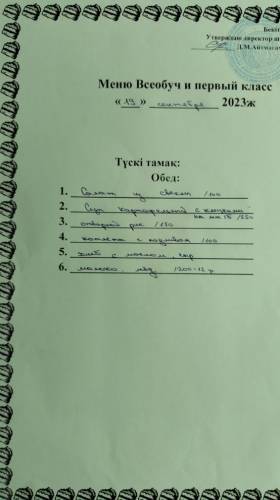 Бекіт
Утверждаю директор ш
Д.М.Айтмаган
Меню Всеобуч и первый класс
«19» сентября 2023ж
Түскі тамак:
Обед:
1. Салат из свеклы /100
2. Суп картофельный с клецками
/250
3. отварной рис /150
4. котлета с подливой /100
5. хлеб с маслом, сыр
6. молоко, мёд /200-12 г